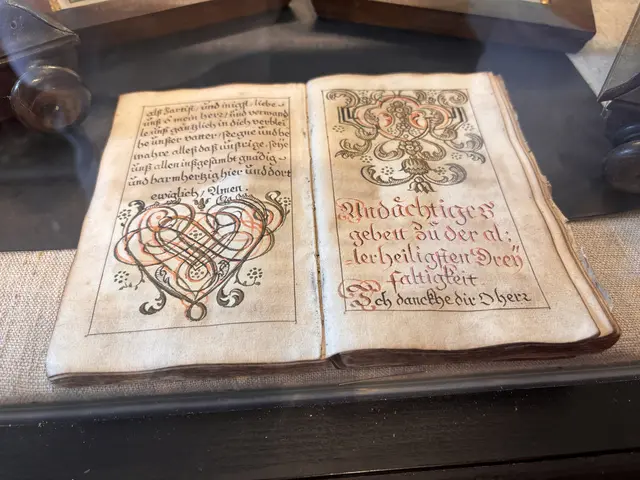 alß zartist, und
mein herz, und verwand
unß gäntzlich in dich
unser vatter, segne und be
wahre, alleß daß unsrige, seÿe
unß allen inßgesambt gnädig,
und barmhertzig hier und dort
ewiglich, Amen.
Andächtiges
gebett Zů der al:
lerheiligsten Dreÿ
faltigkeit.
Ich danckhe dir O herr